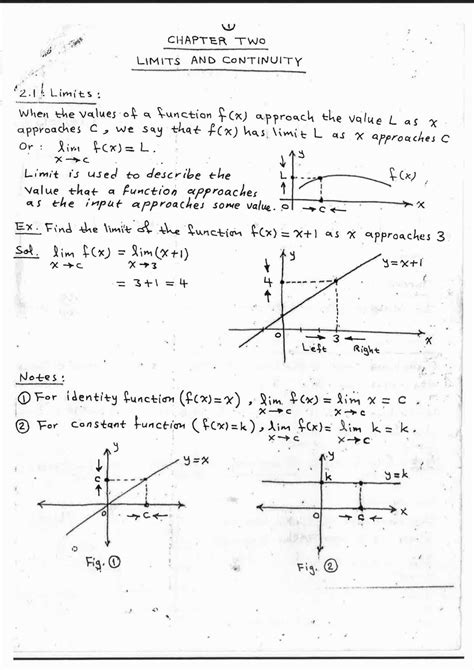 1
CHAPTER TWO
LIMITS AND CONTINUITY
2.1: Limits:
When the values of a function f(x) approach the value L as x
approaches C, we say that f(x) has limit L as x approaches C
Or: lim f(x) = L.
x→c
Limit is used to describe the
value that a function approaches
as the input approaches some value.
y
L
f(x)
0
→c←
x
Ex. Find the limit of the function f(x) = x+1 as x approaches 3
Sol. lim f(x) = lim(x+1)
x→c x→3
= 3+1 = 4
y
y=x+1
4
0
→ 3 ←
x
Left Right
Notes:
① For identity function (f(x)=x), lim f(x) = lim x = c.
x→c x→c
② For constant function (f(x)=k), lim f(x) = lim k = k.
x→c x→c
y
y=x
c
0
→c←
x
Fig. ①
y
k
y=k
0
→c←
x
Fig. ②